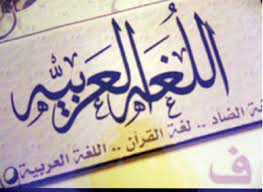 اللغة العربية
لغة الضاد .. لغة القرآن .. اللغة العربية
ف